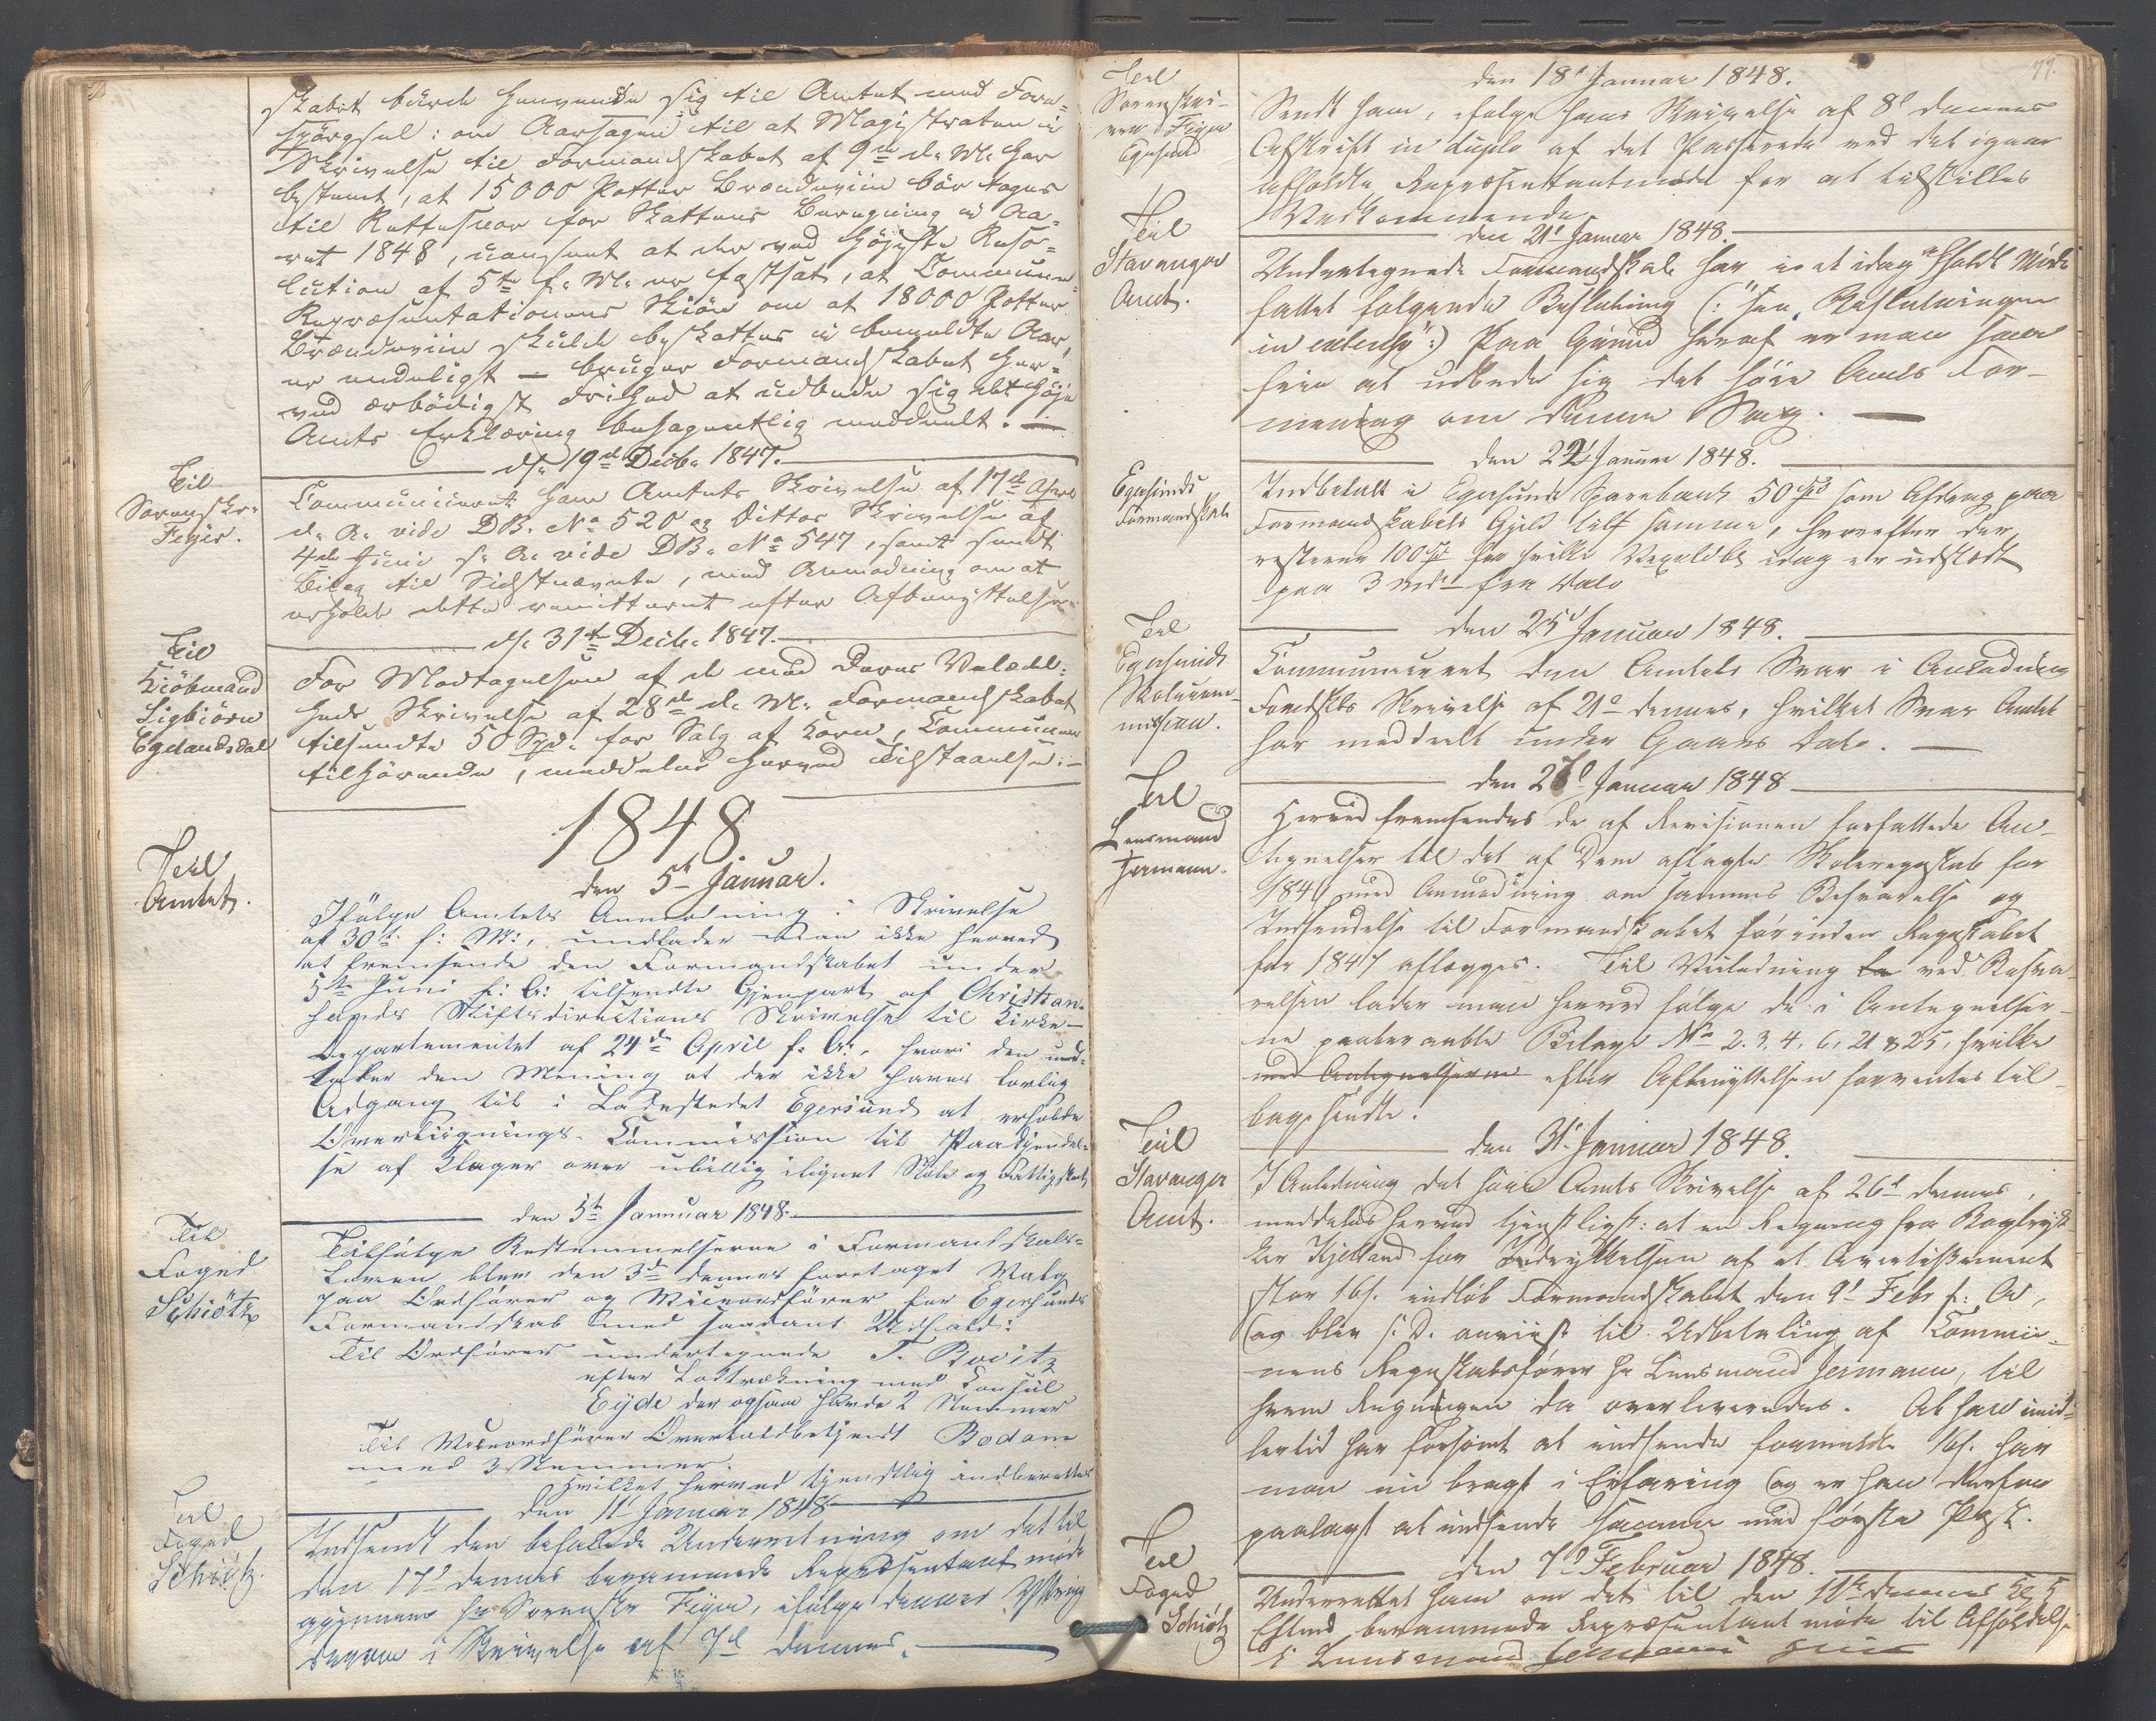 skabet burde henvende sig til Amtet med Fore-
spörgsel: om Aarsagen til at Magistraten i
Skrivelse til Formandskabet af 9de d. M. har
bestemt, at 15000 Potter Brændeviin bör tages
til Rettesnor for Skattens Beregning i Aa-
ret 1848, uanseet at der ved Höjeste Reso-
lution af 5te f. M. er fastsat, at Commune-
Repræsentationens Skiön om at 18000 Potter
Brændeviin skulde beskattes i bemeldte Aar,
er endeligt — bruger Formandskabet her-
ved ærbödigst Frihed at udbede sig det Höje
Amts Erklæring behageligtlig meddeelt. —
Til
Sorenskr.
Feyer.
d. 19de Decbr. 1847.
Communiceret ham Amtets Skrivelse af 17de April
d. A. vide DB. No 520 og dittos Skrivelse af
4de Juni s. A. vide DB. No 547, samt sendt
Bilag til Sidstnævnte, med Anmodning om at
erholde dette remitteret efter Afbenyttelsen.
Til
Kiöbmand
Sigbiörn
Egelandsdal
d. 31te Decbr. 1847.
For Modtagelsen af de med Deres Velædel-
heds Skrivelse af 28de d. M. Formandskabet
tilsendte 50 Spd. for Salg af Korn, Communen
tilhörende, meddeles herved Tilstaaelse. —
1848
Til
Amtet.
den 5te Januar.
Ifölge Amtets Anmodning i Skrivelse
af 30te f: M:, undlader man ikke herved
at fremsende den Formandskabet under
5te Juni f: A: tilsendte Gjenpart af Christian-
sands Stiftsdirections Skrivelse til Kirke-
departementet af 24de April f. A., hvori den ud-
taler den Mening at der ikke haves lovlig
Adgang til i Ladestedet Egersund at erholde
Overlignings-Commission til Paakjendel-
se af Klager over ubillig ilignet Skole og Fattigskat,
Til
Foged
Schiötz
den 5te Januar 1848.
Tilfölge Bestemmelserne i Formandskabs-
Loven blev den 3de dennes foretaget Valg
paa Ordförer og Viceordförer for Egersunds
Formandskab med saadant Udfald:
Til Ordförer undertegnede T. Bovitz
efter Lodtrækning med Consul
Eyde der ogsaa havde 2 Stemmer
Til Viceordförer Overtoldbetjendt Bodom
med 3 Stemmer.
Hvilket herved tjenstlig indberettes
Til
Foged
Schiötz.
den 11te Januar 1848
Indsendt den befalede Underretning om det til
den 17de dennes berammede Repræsentant möde
gjennem Hr Sorenskr Feyer, ifölge dennes Yttring
derom i Skrivelse af 7de dennes.
77.
Til
Sorenskri-
ver Feyer
Egersund
den 18de Januar 1848.
Sendt ham, ifölge hans Skrivelse af 8de dennes
Afskrift in duplo af det Passerede ved det igaar
afholdte Repræsentantmöde for at tilstilles
Vedkommende.
Til
Stavanger
Amt.
den 21de Januar 1848.
Undertegnede Formandskab har i et idag afholdt Möde
fattet fölgende Beslutning (: "see Beslutningen
in extenso" :) Paa Grund heraf er man saa
friin at udbede sig det höie Amts For-
mening om denne Sag. —
Egersunds
Formandskab
den 22de Januar 1848.
Indbetalt i Egersunds Sparebank 50 Spd som Afdrag paa
Formandskabets Gjeld til samme, hvorefter der
resterer 100 Spd for hvilke Vexelobl. idag er udstædt
paa 3 Md. fra Dato
Til
Egersunds
Skolecom-
mission.
den 25de Januar 1848.
Communiceret den Amtets Svar i Anledning
Formdskbs Skrivelse af 21de dennes, hvilket Svar Amtet
har meddeelt under Gaars Dato. —
Til
Lensmand
Jermann.
den 27de Januar 1848
Herved fremsendes de af Revisionen forfattede An-
tegnelser til det af Dem aflagte Skoleregnskab for
1846 med Anmodning om sammes Besvarelse og
Indsendelse til Formandskabet förinden Regnskabet
for 1847 aflægges. Til Veiledning ved Besva-
relsen lader man herved fölge de i Antegnelser-
ne paaberaabte Bilage No 2. 3. 4. 6. 21 & 25, hvilke
med Antegnelserne efter Afbenyttelsen forventes til-
bage sendte.
Til
Stavanger
Amt.
den 31te Januar 1848.
I Anledning det höie Amts Skrivelse af 26de dennes,
meddeles herved tjenstligst: at en Regning fra Bogtryk-
ker Kjelland for Indrykkelsen af et Avertissement
stor 16 s. indlöb Formandskabet den 9de Febr f: A,
og blev s: D. anviist til Udbetaling af Commu-
nens Regnskabsförer Hr Lensmand Jermann, til
hvem Regningen da overleveredes. At han imid-
lertid har forsömt at indsende formeldte 16 s. har
man nu bragt i Erfaring og er han derfor
paalagt at indsende samme med förste Post.
Til
Foged
Schiötz
den 7de Februar 1848.
Underrettet ham om det til den 11te dennes Kl. 5
Efterm. berammede Repræsentant möde til Afholdelse
i Lensmand Jermanns Huus